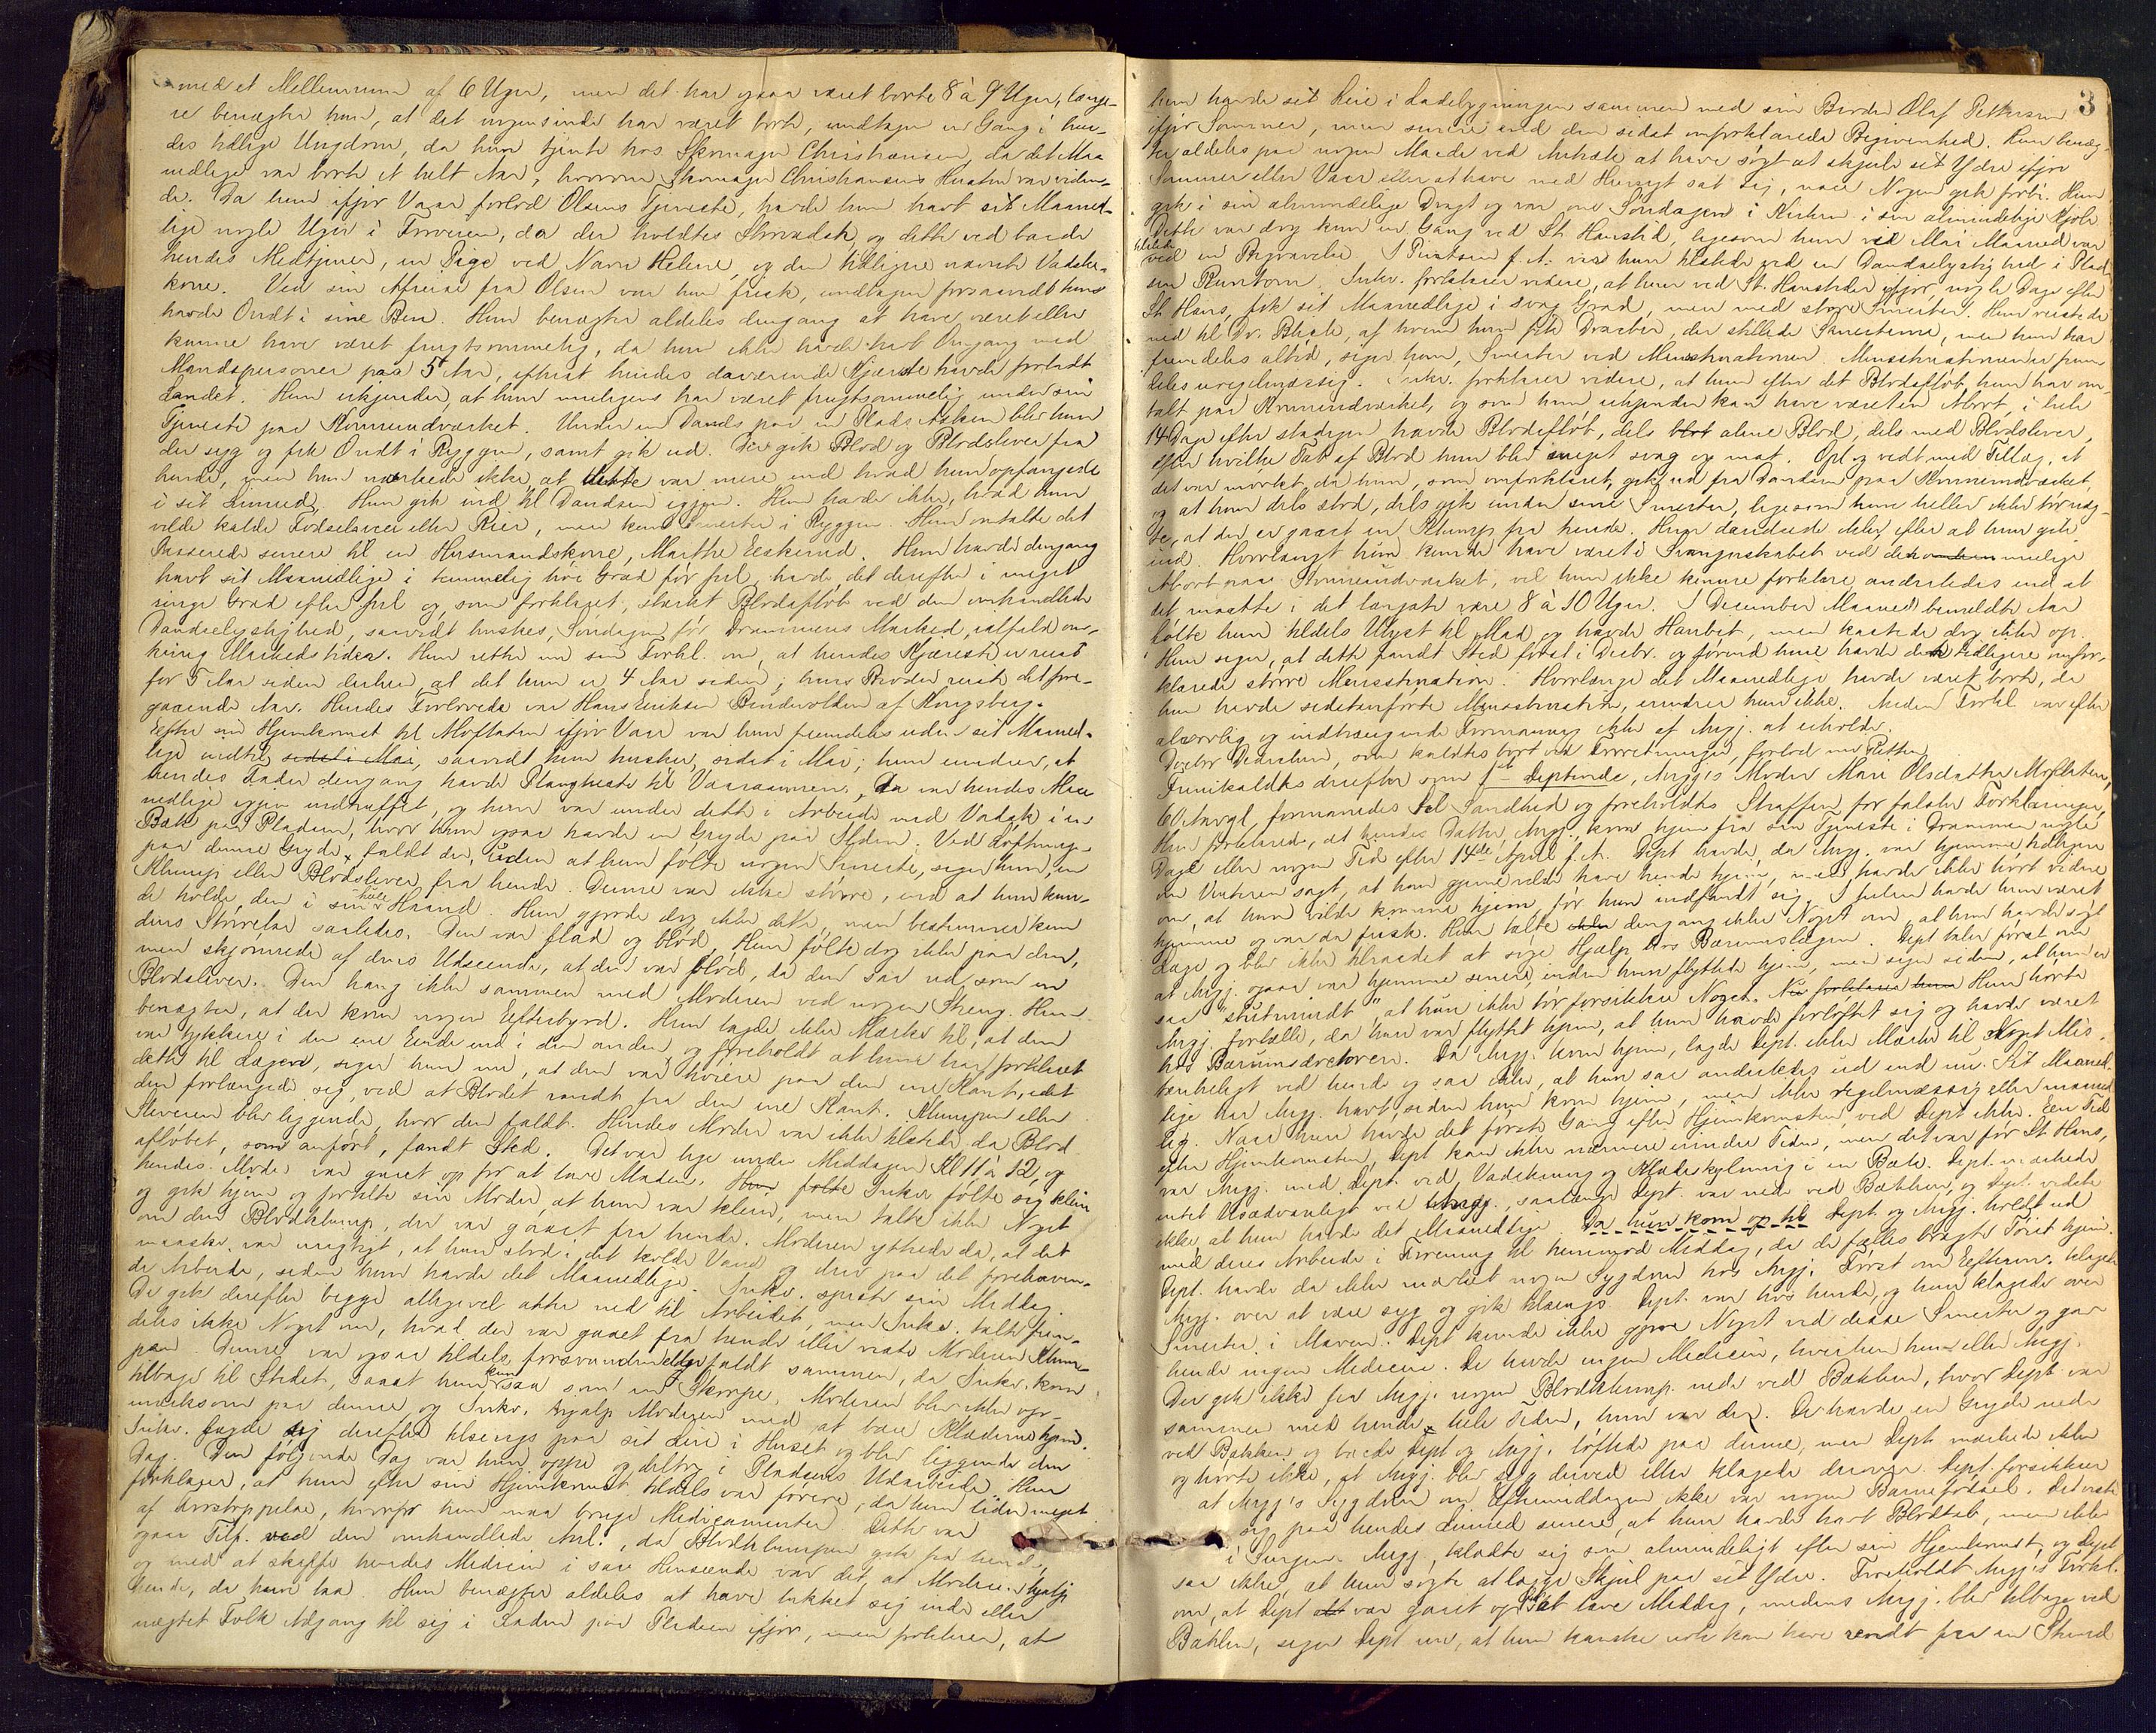 med et Mellemrum af 6 Uger, men det har ogsaa været borte 8 à 9 Uger, længe-
re benægter hun, at det nogensinde har været borte, undtagen en Gang i hen-
des tidlige Ungdom, da hun tjente hos Skomager Christiansen, da det Maa-
nedlige var borte et helt Aar, hvorom Skomager Christiansens Hustru var viden-
de. Da hun ifjor Vaar forlod Olsens Tjeneste, havde hun havt sit Maaned-
lige nogle Uger i Forveien, da der holdtes Storvadsk, og dette ved baade
hendes Medtjener, en Pige ved Navn Helene, og den tidligere nævnte Vadske-
kone. Ved sin Afreise fra Olsen var hun frisk, undtagen forsaavidt hun
havde Ondt i sine Ben. Hun benægter aldeles dengang at have været eller
kunne have været frugtsommelig, da hun ikke havde havt Omgang med
Mandspersoner paa 5 Aar, efterat hendes daværende Kjæreste havde forladt
Landet. Hun erkjender, at hun muligens har været frugtsommelig under sin
Tjeneste paa Kommendværket. Under en Dands paa en Plads Asken blev hun
der syg og fik Ondt i Ryggen, samt gik ud. Der gik Blod og Blodslever fra
hende, men hun mærkede ikke, at dette var mere end hvad hun opfangede
i sit Linned. Hun gik ind til Dandsen igjen. Hun havde ikke, hvad hun
vilde kalde Fødselsveer eller Rier, men kun Smerter i Ryggen. Hun omtalte det
Passerede senere til en Husmandskone, Marthe Eeskerud. Hun havde dengang
havt sit Maanedlige i temmelig høi Grad før Jul, havde det derefter i meget
ringe Grad efter Jul og, som forklaret, stærkt Blodafløb ved den omhandlede
Dandselystighed, saavidt huskes, Søndagen før Drammens Marked, ialfald om-
kring Markedstiden. Hun retter nu sin Forkl. om, at hendes Kjæreste er reist
for 5 Aar siden derhen, at det kun er 4 Aar siden; hans Broder reiste det fore-
gaaende Aar. Hendes Forlovede var Hans Eriksen Bindevolden af Kongsberg.
Efter sin Hjemkomst til Moflaten ifjor Vaar var hun fremdeles uden sit Maaned-
lige indtil sidst i Mai, saavidt hun husker, sidst i Mai; hun erindrer, at
hendes Fader dengang havde Plougheste til Vaaraannen. Da var hendes Maa-
nedlige igjen indtruffet, og hun var under dette i Arbeide med Vadsk i en
Bæk paa Pladsen, hvor hun ogsaa havde en Gryde paa Ilden. Ved Løftning
paa denne Gryde, faldt der, uden at hun følte nogen Smerte, siger hun, en
Klump eller Blodslever fra hende. Denne var ikke større, end at hun kun-
de holde den i sin hule Haand. Hun gjorde dog ikke dette, men bestemmer kun
dens Størrelse saaledes. Den var flad og blød. Hun følte dog ikke paa den,
men skjønnede af dens Udseende, at den var blød, da den saa ud som en
Blodslever. Den hang ikke sammen med Moderen ved nogen Streng. Hun
benægter, at der kom nogen Efterbyrd. Hun lagde ikke Mærke til, at den
var tykkere i den ene Ende end i den anden, og foreholdt at hun har forklaret
dette til Lægen, siger hun nu, at den var høiere paa den ene Kant, idet
den forlængede sig, ved at Blodet randt fra den ene Kant. Klumpen eller
Sleveren blev liggende, hvor den faldt. Hendes Moder var ikke tilstede, da Blod-
afløbet, som anført, fandt Sted. Det var lige under Middagen Kl 11 à 12, og
hendes Moder var gaaet op for at lave Maden. Hun følte Inkv. følte sig klein
og gik hjem og fortalte sin Moder, at hun var klein, men talte ikke Noget
om den Blodklump, der var gaaet fra hende. Moderen yttrede da, at det
maaske var urigtigt, at hun stod i det kolde Vand og drev paa det forehaven-
de Arbeide, siden hun havde det Maanedlige. Inkv. spiste sin Middag.
De gik derefter begge alligevel atter ned til Arbeidet, men Inkv. talte frem-
deles ikke Noget om, hvad der var gaaet fra hende eller viste Moderen Klum-
pen. Denne var ogsaa tildels forsvunden eller faldt sammen, da Inkv. kom
tilbage til Stedet, saaat hun kun saa som en Skorpe. Moderen blev ikke op-
mærksom paa denne og Inkv. hjalp Moderen med at bære Klæderne hjem.
Inkv. lagde sig derefter tilsengs paa sit Leie i Huset og blev liggende den
Dag. Den følgende Dag var hun oppe og deltog i Pladsens Udarbeide. Hun
forklarer, at hun efter sin Hjemkomst tildels var førere, da hun lider meget
af Forstoppelse, hvorfor hun maa bruge Medicamenter. Dette var
ogsaa Tilf. ved den omhandlede Anl., da Blodklumpen gik fra hende,
og med at skaffe hendes Medicin i saa Henseende var det, at Moderen hjalp
hende, da hun laa. Hun benægter aldeles at have lukket sig inde eller
nægtet Folk Adgang til sig i Laden paa Pladsen ifjor, men forklarer, at
3
hun havde sit Leie i Ladebygningen sammen med sin Broder Olaf Pettersen
ifjor Sommer, men senere end den sidst omforklarede Begivenhed. Hun benæg-
ter aldeles paa nogen Maade ved Antræk at have søgt at skjule sit Ydre ifjor
Sommer eller Vaar eller at have med Hensyt sat sig, naar Nogen gik forbi. Hun
gik i sin almindelige Dragt og var om Søndagen i Kirken i sin almindelige Kjole.
Dette var dog kun en Gang ved St. Hanstid, ligesom hun ved Mai Maaned var
tilstede
ved en Begravelse. I Pintsen f. A. var hun tilstede ved en Dandselystighed i Plad-
sen Runtom. Inkv. forklarer videre, at hun ved St. Hanstider ifjor, nogle Dage efter
St Hans, fik sit Maanedlige i svag Grad, men med store Smerter. Hun reiste da
ned til Dr. , af hvem hun fik Draaber, der stillede Smerterne, men hun har
fremdeles altid, siger hun, Smerter ved Menstruationen. Menstruationen er frem-
deles uregelmæssig. Inkv. forklarer videre, at hun efter det Blodafløb, hun har om-
talt paa Kommendværket, og som hun erkjender kan have været en Abort, i hele
14 Dage efter stadigen havde Blodafløb, dels blot alene Blod, dels med Blodslever,
efter hvilke Tab af Blod hun blev meget svag og mat. Opl. og vedt. med Tillæg, at
det var mørkt, da hun, som omforklaret, gik ud fra Dandsen paa Kommendværket,
og at hun dels stod, dels gik under sine Smerter, ligesom hun heller ikke tør næg-
te, at der er gaaet en Klump fra hende. Hun dandsede ikke, efter at hun gik
ind. Hvorlangt hun kunde have været i Svangerskabet ved den muelige
Abort paa Kommendværket, vil hun ikke kunne forklare anderledes end at
det maatte i det længste være 8 à 10 Uger. I December Maaned bemeldte Aar
følte hun tildels Ulyst til Mad og havde Harket, men kastede dog ikke op.
Hun siger, at dette fandt Sted først i Decbr. og førend hun havde den tidligere omfor-
klarede større Menstruation. Hvorlænge det Maanedlige havde været borte, da
hun havde sidstanførte Menstruation, erindrer hun ikke. Anden Forkl. var efter
alvorlig og indtrængende Formaning ikke af Angj. at erholde.
Doctor Dedichen, som kaldtes bort ved Forretninger, forlod nu Retten.
Fremkaldtes derefter som 1ste Deptinde, Angj's Moder Mari Olsdatter Moflaten,
60 Aar gl., formanedes til Sandhed og foreholdtes Straffen for falske Forklaringer.
Hun forklarede, at hendes Datter, Angj., kom hjem fra sin Tjeneste i Drammen nogle
Dage eller nogen Tid efter 14de April f. A. Dept. havde, da Angj. var hjemme tidligere
om Vinteren sagt, at hun gjerne vilde have hende hjem, men havde ikke hørt videre
om, at hun vilde komme hjem, før hun indfandt sig. I Julen havde hun været
hjemme og var da frisk. Hun talte ikke dengang ikke Noget om, at hun havde søgt
Læge og blev ikke tilraadet at søge Hjælp hos Bærumslægen. Dept. taler først om
at Angj. ogsaa var hjemme senere, inden hun flyttede hjem, men siger siden, at hun er
saa "stutmindt", at hun ikke tør forsikkre Noget. Nu forklarer hun Hun hørte
Angj. fortælle, da hun var flyttet hjem, at hun havde forløftet sig og havde været
hos Bærumsdoctoren. Da Angj. kom hjem, lagde Dept. ikke Mærke til Noget Mis-
tænkeligt ved hende og saa ikke, at hun saa anderledes ud end nu. Sit Maaned-
lige har Angj. havt, siden hun kom hjem, men ikke regelmæssig eller maaned-
lig. Naar hun havde det første Gang efter Hjemkomsten, ved Dept. ikke. Een Tid
efter Hjemkomsten, Dept. kan ikke nærmere erindre Tiden, men det var før St. Hans,
var Angj. med Dept. ved Vadskning og Klædeskylning i en Bæk. Dept. mærkede
intet Usædvanligt ved Angj., saalænge Dept. var nede ved Bækken, og Dept. vidste
ikke, at hun havde det Maanedlige. Da hun kom op til Dept. og Angj. holdt ud
med deres Arbeide i Forening til henimod Middag, da de fælles bragte Tøiet hjem.
Dept. havde da ikke mærket nogen Sygdom hos Angj. Først om Efterm. klagede
Angj. over at være syg og gik tilsengs. Dept. var hos hende, og hun klagede over
Smerter i Maven. Dept. kunde ikke gjøre Noget ved disse Smerter og gav
hende ingen Medicin. De havde ingen Medicin, hverken hun eller Angj.
Der gik ikke fra Angj. nogen Blodklump nede ved Bækken, hvor Dept. var
sammen med hende hele Tiden, hun var der. De havde en Gryde nede
ved Bækken og baade Dept. og Angj. løftede paa denne, men Dept. mærkede ikke
og hørte ikke, at Angj. blev syg derved eller klagede derover. Dept. forsikkrer
at Angj's Sygdom om Eftermiddagen ikke var nogen Barnefødsel. Det viste
sig paa hendes Linned senere, at hun havde havt Blodtab, men ikke
i Sengen. Angj. klædte sig som almindeligt efter sin Hjemkomst, og Dept.
saa ikke, at hun søgte at lægge Skjul paa sit Ydre. Foreholdt Angj's Forkl.
om, at Dept. var gaaet op for at lave Middag, medens Angj. blev tilbage ved
Bækken, siger Dept. nu, at hun kanske nok kan have rendt fra en Stund